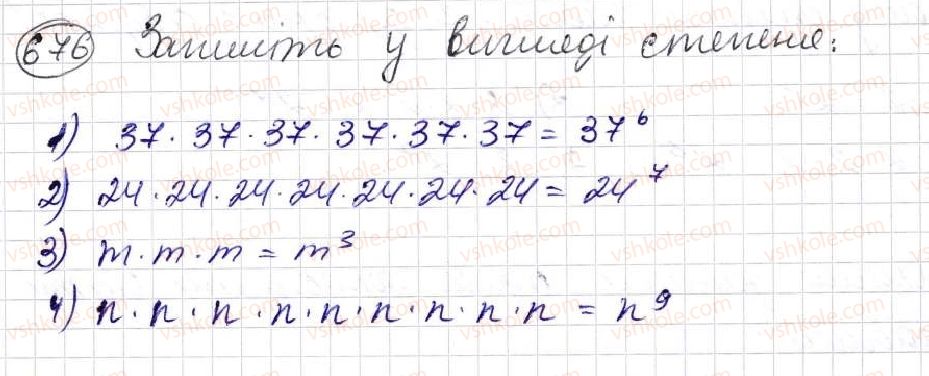 676 Запишіть у вигляді степеня:
1) 37·37·37·37·37·37 = 37⁶
2) 24·24·24·24·24·24·24 = 24⁷
3) m·m·m = m³
4) n·n·n·n·n·n·n·n·n = n⁹
vshkole.com